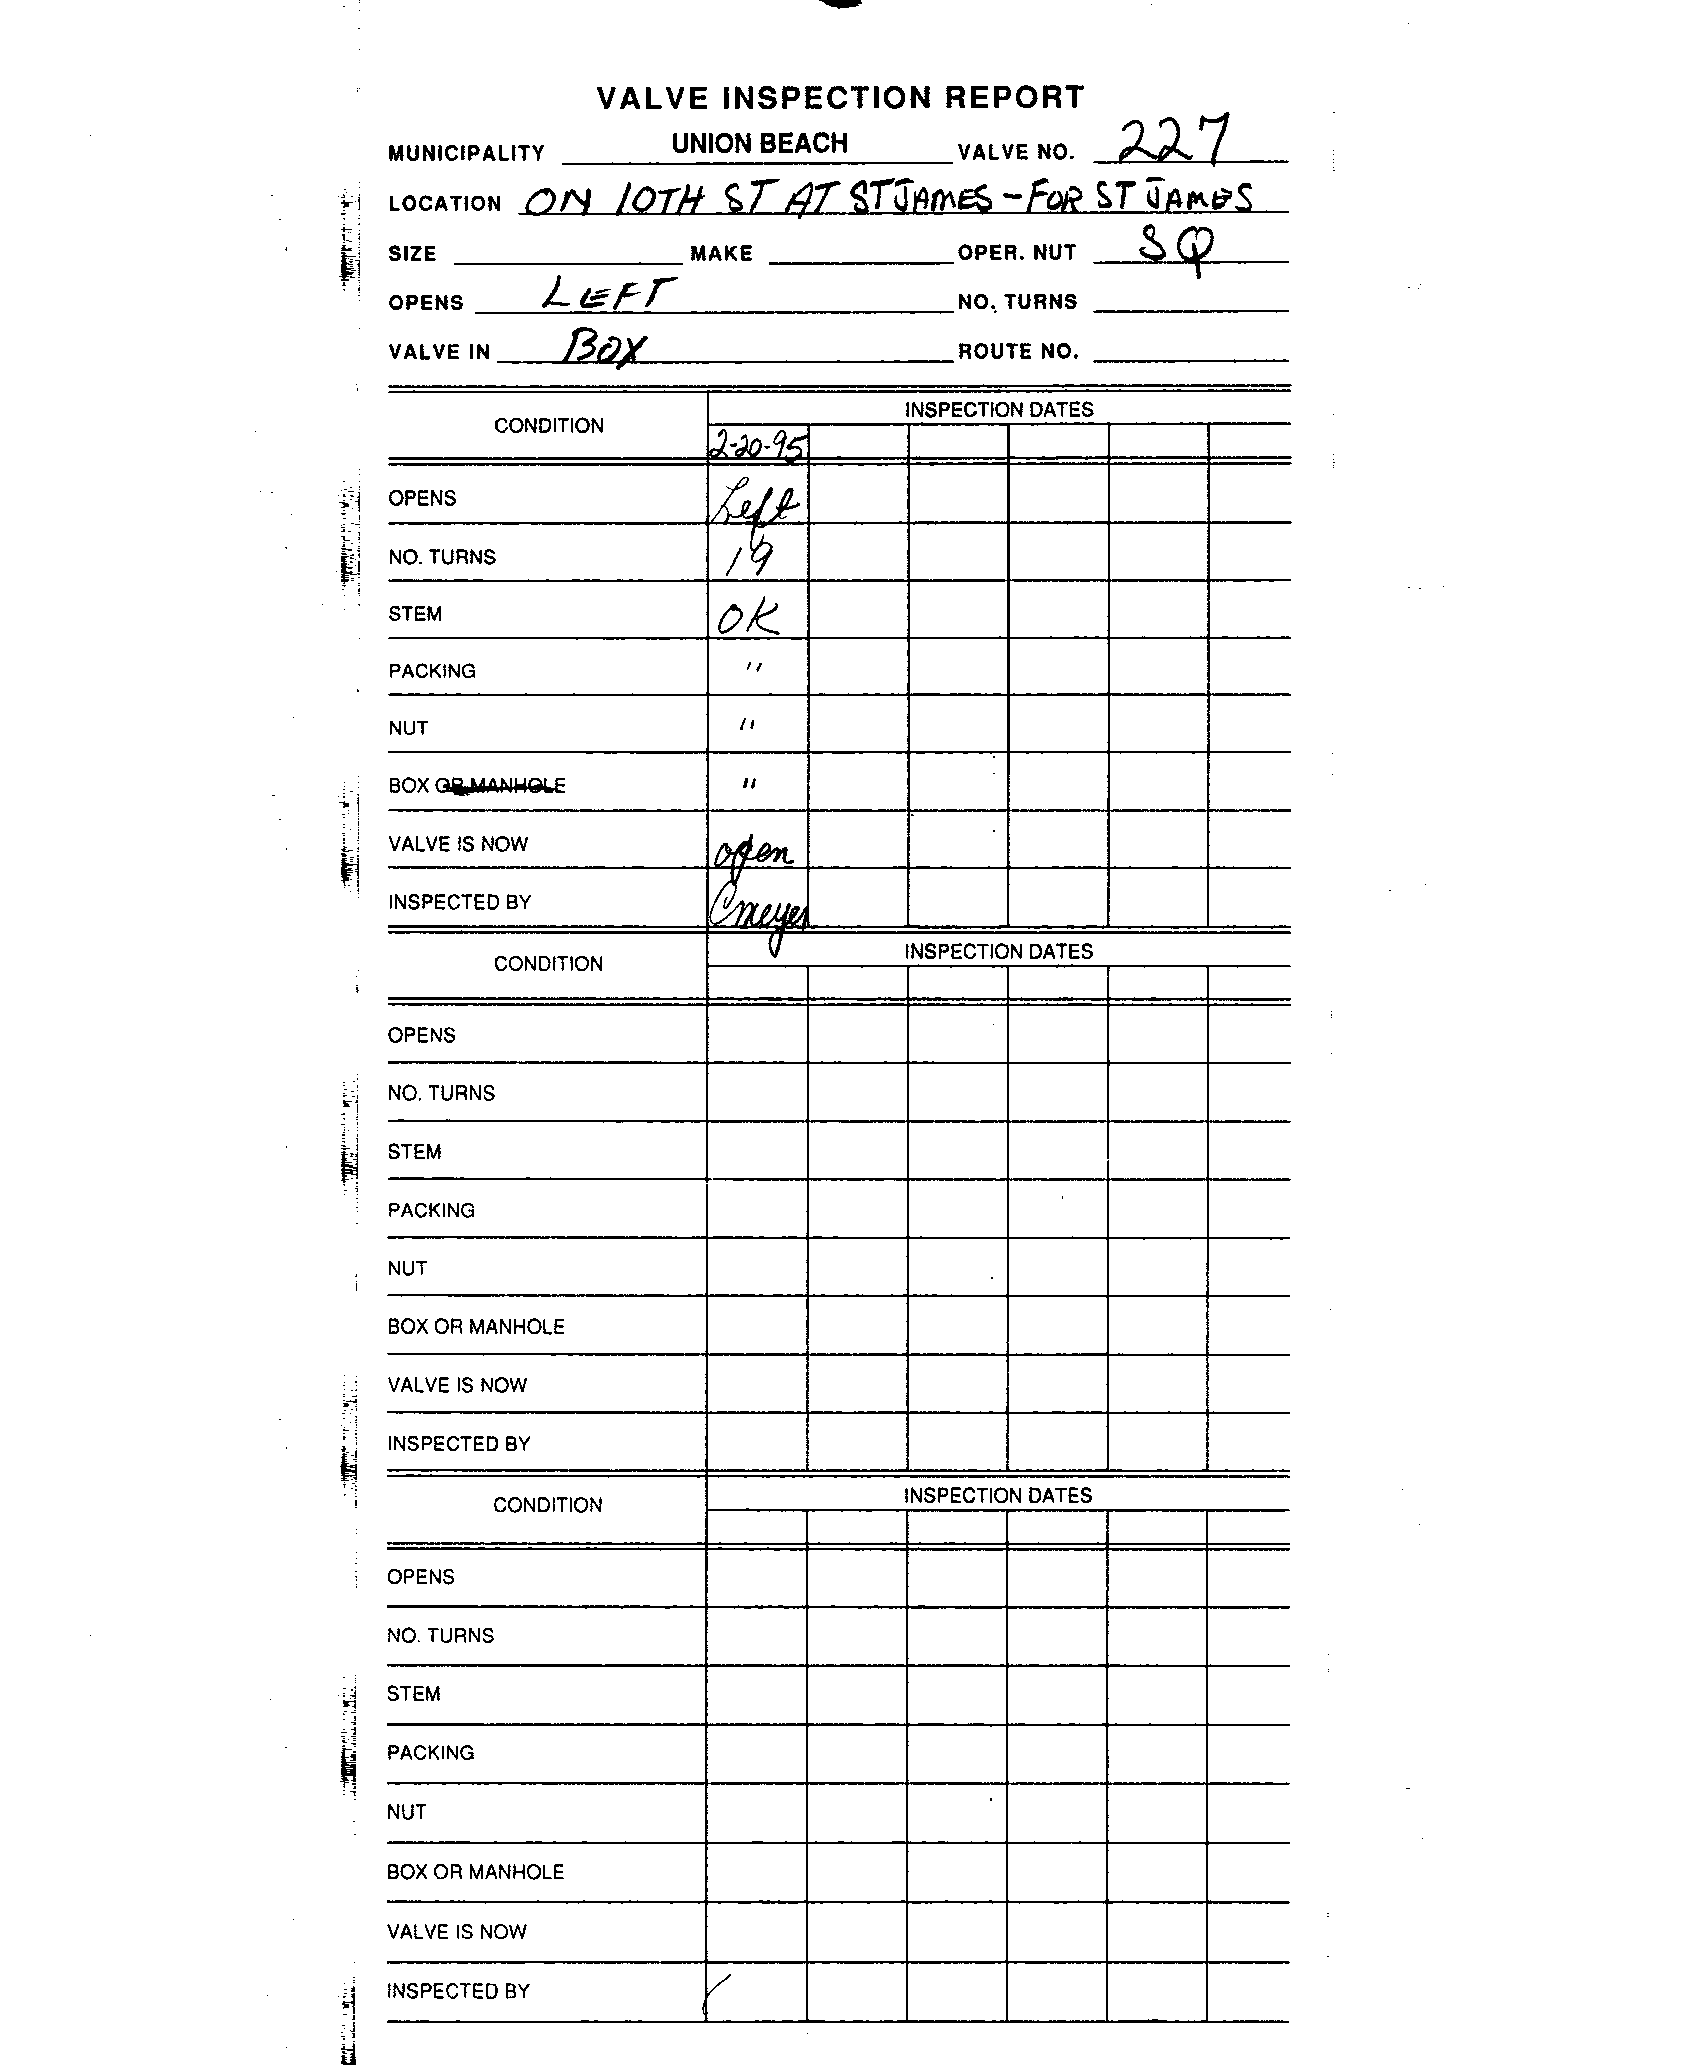 VALVE INSPECTION REPORT
MUNICIPALITY UNION BEACH VALVE NO. 227
LOCATION ON 10TH ST AT ST JAMES - FOR ST JAMES
SIZE MAKE OPER. NUT SQ
OPENS LEFT NO. TURNS
VALVE IN BOX ROUTE NO.
CONDITION INSPECTION DATES
2-20-95
OPENS Left
NO. TURNS 19
STEM OK
PACKING "
NUT "
BOX OR MANHOLE "
VALVE IS NOW open
INSPECTED BY CMeyer
CONDITION INSPECTION DATES
OPENS
NO. TURNS
STEM
PACKING
NUT
BOX OR MANHOLE
VALVE IS NOW
INSPECTED BY
CONDITION INSPECTION DATES
OPENS
NO. TURNS
STEM
PACKING
NUT
BOX OR MANHOLE
VALVE IS NOW
INSPECTED BY